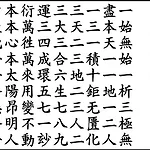 一始無始一析三極無
盡本天一一地一二人
一三一積十鉅無匱化
三天二三地二三人二
三大三合六生七八九
運三四成環五七一妙
衍萬往萬來用變不動
本本心本太陽昂明人